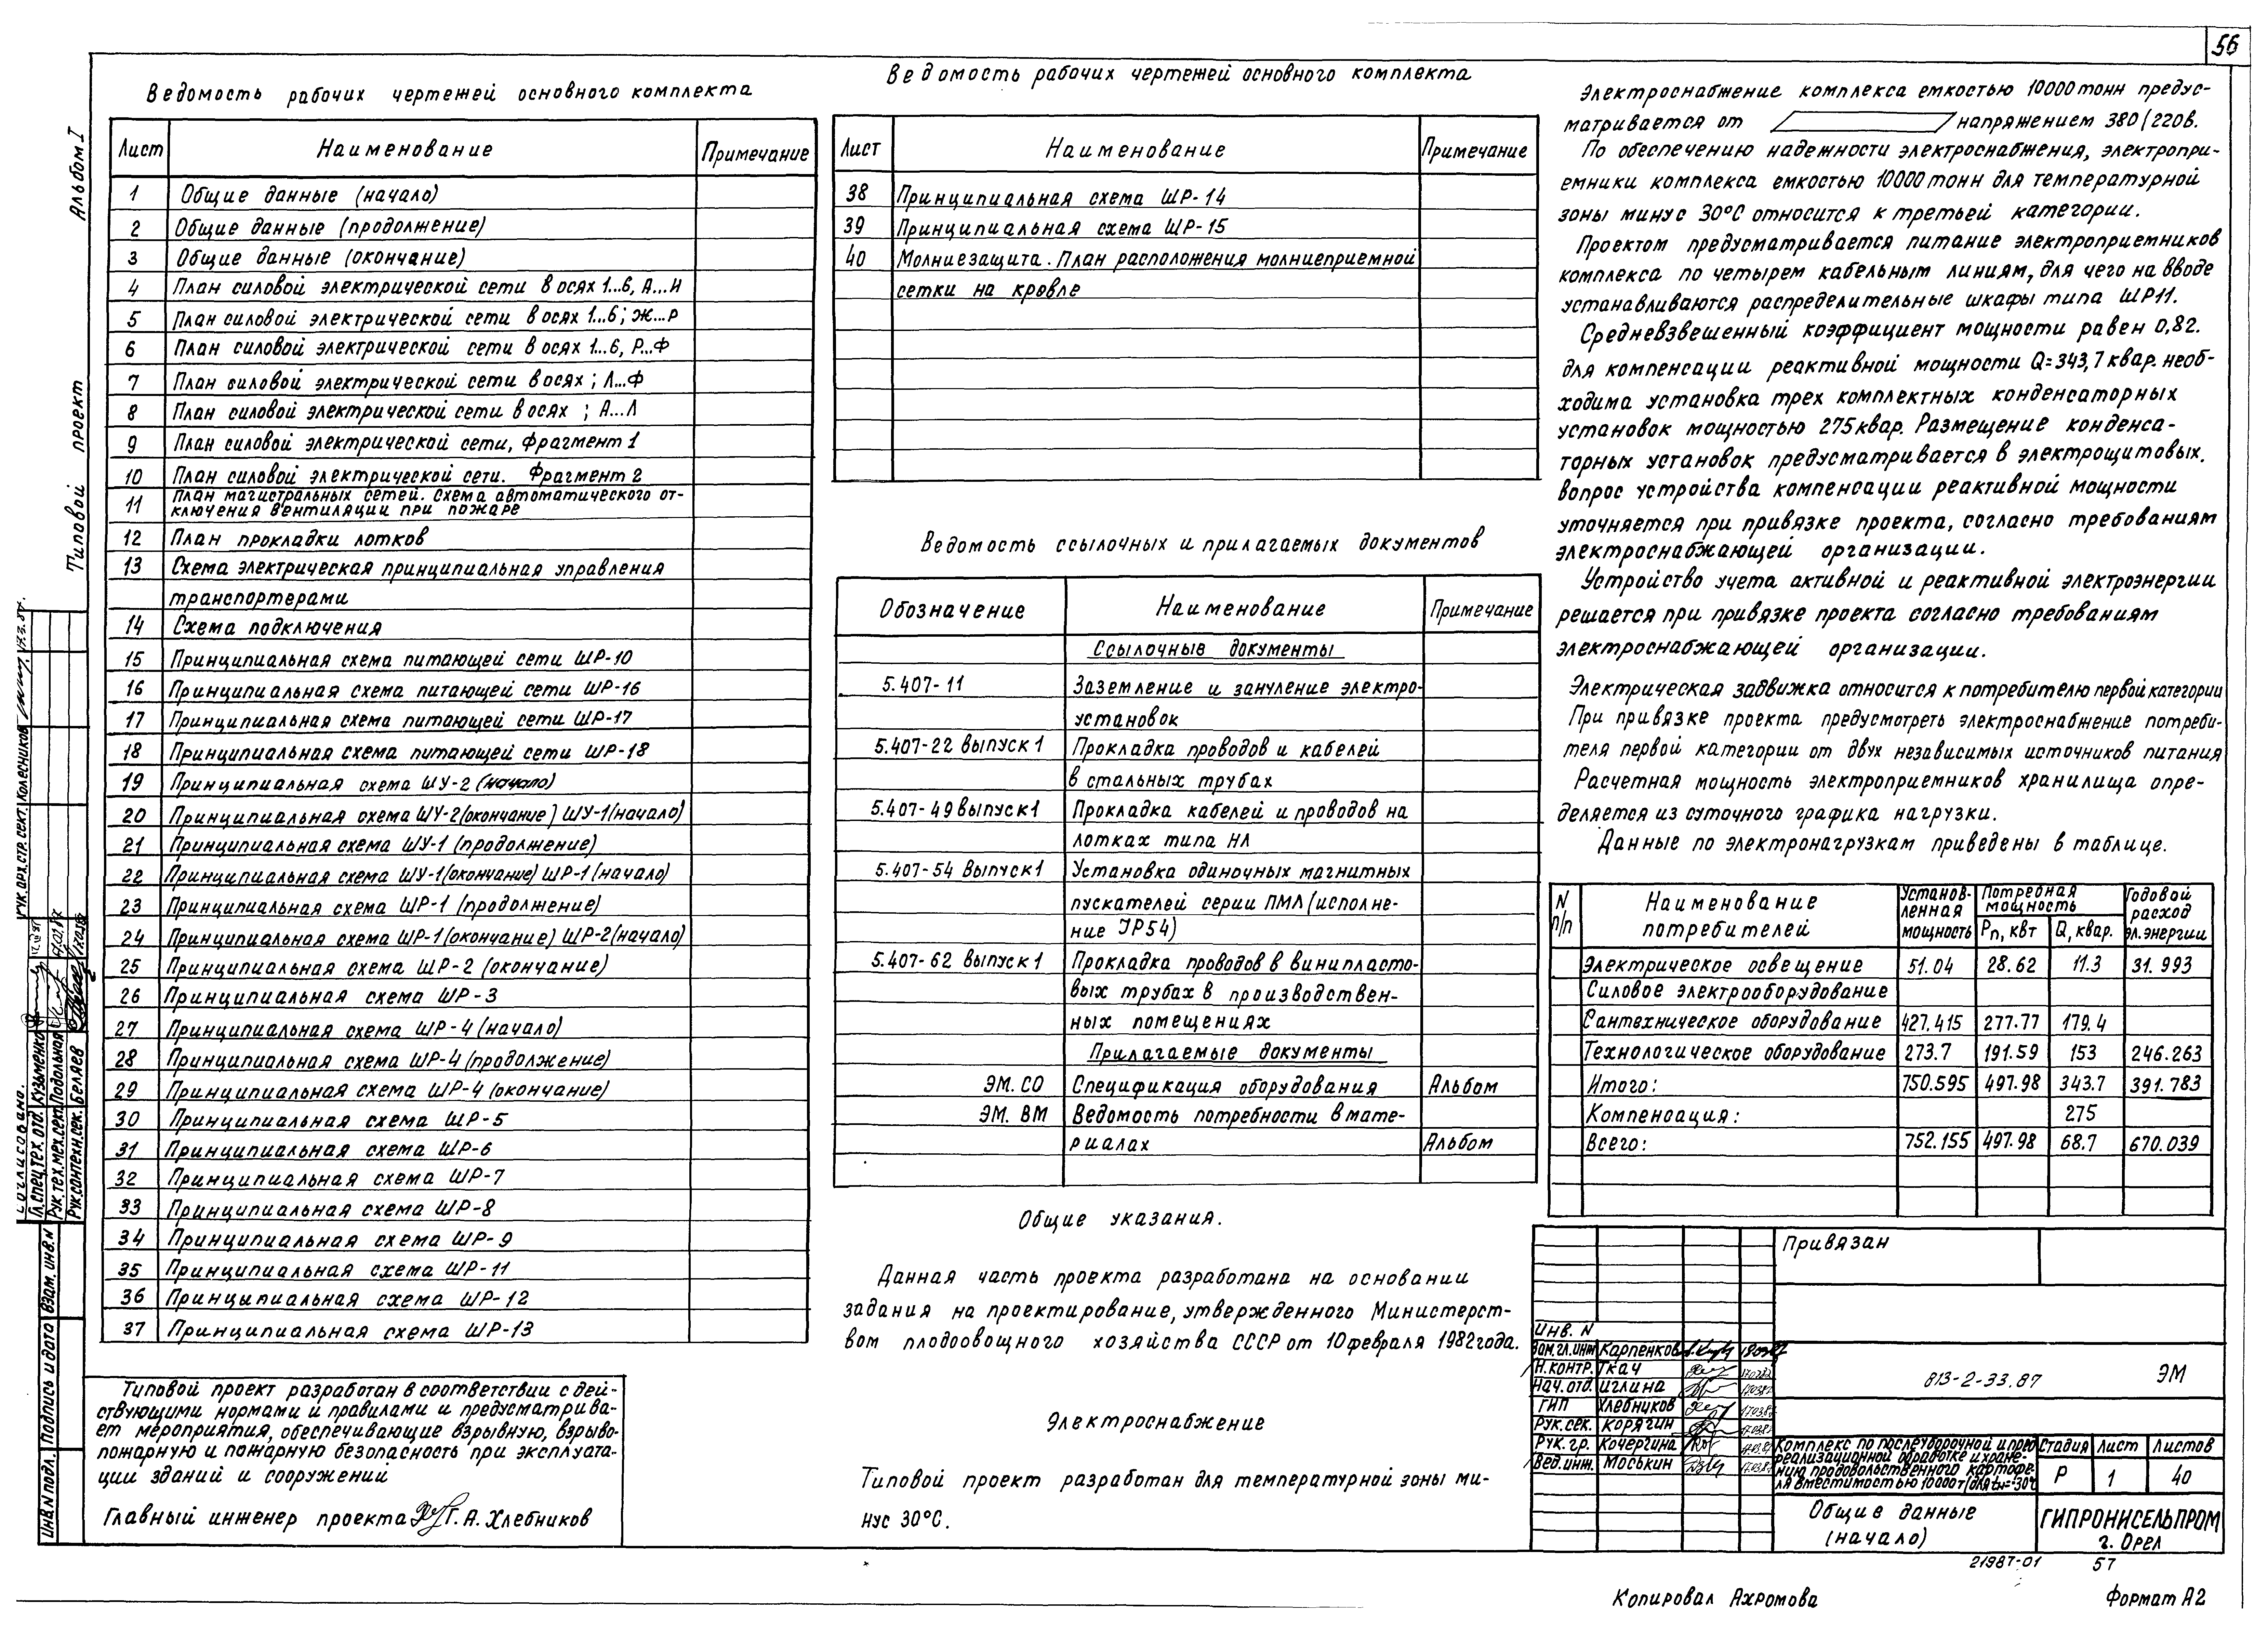 56
Ведомость рабочих чертежей основного комплекта
Лист Наименование Примечание
1 Общие данные (начало)
2 Общие данные (продолжение)
3 Общие данные (окончание)
4 План силовой электрической сети в осях 1...6, А...И
5 План силовой электрической сети в осях 1...6; Ж...Р
6 План силовой электрической сети в осях 1...6, Р...Ф
7 План силовой электрической сети в осях ; Л...Ф
8 План силовой электрической сети в осях ; А...Л
9 План силовой электрической сети, Фрагмент 1
10 План силовой электрической сети. Фрагмент 2
11 План магистральных сетей. Схема автоматического от-
ключения вентиляции при пожаре
12 План прокладки лотков
13 Схема электрическая принципиальная управления
транспортерами
14 Схема подключения
15 Принципиальная схема питающей сети ШР-10
16 Принципиальная схема питающей сети ШР-16
17 Принципиальная схема питающей сети ШР-17
18 Принципиальная схема питающей сети ШР-18
19 Принципиальная схема ШУ-2 (начало)
20 Принципиальная схема ШУ-2(окончание) ШУ-1(начало)
21 Принципиальная схема ШУ-1 (продолжение)
22 Принципиальная схема ШУ-1(окончание) ШР-1 (начало)
23 Принципиальная схема ШР-1 (продолжение)
24 Принципиальная схема ШР-1(окончание) ШР-2(начало)
25 Принципиальная схема ШР-2 (окончание)
26 Принципиальная схема ШР-3
27 Принципиальная схема ШР-4 (начало)
28 Принципиальная схема ШР-4 (продолжение)
29 Принципиальная схема ШР-4 (окончание)
30 Принципиальная схема ШР-5
31 Принципиальная схема ШР-6
32 Принципиальная схема ШР-7
33 Принципиальная схема ШР-8
34 Принципиальная схема ШР-9
35 Принципиальная схема ШР-11
36 Принципиальная схема ШР-12
37 Принципиальная схема ШР-13
Типовой проект разработан в соответствии с дей-
ствующими нормами и правилами и предусматрива-
ет мероприятия, обеспечивающие взрывную, взрыво-
пожарную и пожарную безопасность при эксплуата-
ции зданий и сооружений
Главный инженер проекта Г. А. Хлебников
Ведомость рабочих чертежей основного комплекта
Лист Наименование Примечание
38 Принципиальная схема ШР-14
39 Принципиальная схема ШР-15
40 Молниезащита. План расположения молниеприемной
сетки на кровле
Ведомость ссылочных и прилагаемых документов
Обозначение Наименование Примечание
Ссылочные документы
5.407-11 Заземление и зануление электро-
установок
5.407-22 выпуск 1 Прокладка проводов и кабелей
в стальных трубах
5.407-49 выпуск1 Прокладка кабелей и проводов на
лотках типа НЛ
5.407-54 Выпуск1 Установка одиночных магнитных
пускателей серии ПМЛ (исполне-
ние IP54)
5.407-62 выпуск 1 Прокладка проводов в винипласто-
вых трубах в производствен-
ных помещениях
Прилагаемые документы
ЭМ. СО Спецификация оборудования Альбом
ЭМ. ВМ Ведомость потребности в мате-
риалах Альбом
Общие указания.
Данная часть проекта разработана на основании
задания на проектирование, утвержденного Министерст-
вом плодоовощного хозяйства СССР от 10 февраля 1982года.
Электроснабжение
Типовой проект разработан для температурной зоны ми-
нус 30°С.
Электроснабжение комплекса емкостью 10000 тонн предус-
матривается от напряжением 380/220в.
По обеспечению надежности электроснабжения, электропри-
емники комплекса емкостью 10000 тонн для температурной
зоны минус 30°С относится к третьей категории.
Проектом предусматривается питание электроприемников
комплекса по четырем кабельным линиям, для чего на вводе
устанавливаются распределительные шкафы типа ШР11.
Средневзвешенный коэффициент мощности равен 0,82.
для компенсации реактивной мощности Q=343,7 квар. необ-
ходима установка трех комплектных конденсаторных
установок мощностью 275 квар. Размещение конденса-
торных установок предусматривается в электрощитовых.
Вопрос устройства компенсации реактивной мощности
уточняется при привязке проекта, согласно требованиям
электроснабжающей организации.
Устройство учета активной и реактивной электроэнергии
решается при привязке проекта согласно требованиям
электроснабжающей организации.
Электрическая задвижка относится к потребителю первой категории
При привязке проекта предусмотреть электроснабжение потреби-
теля первой категории от двух независимых источников питания
Расчетная мощность электроприемников хранилища опре-
деляется из суточного графика нагрузки.
Данные по электронагрузкам приведены в таблице.
N п/п Наименование потребителей Установ-ленная мощность Потребная мощность Рп, квт Q, квар. Годовой расход эл.энергии
Электрическое освещение 51.04 28.62 11.3 31.993
Силовое электрооборудование
Сантехническое оборудование 427.415 277.77 179.4
Технологическое оборудование 273.7 191.59 153 246.263
Итого: 750.595 497.98 343.7 391.783
Компенсация: 275
Всего: 752.155 497.98 68.7 670.039
Привязан
Инв. N
Зам.гл.инж Карпенков
Н.контр. Ткач
Нач.отд. Иглина
ГИП Хлебников 17.03.87
Рук.сек. Корягин 17.03.87
Рук. гр. Кочергина
Вед.инж. Моськин 17.03.87
813-2-33.87 ЭМ
Комплекс по послеуборочной и пред
реализационной обработке и хране-
нию продовольственного картофе-
ля вместимостью 10000т/для tн=-30°с
Стадия Лист Листов
Р 1 40
Общие данные
(начало)
ГИПРОНИСЕЛЬПРОМ
г. Орел
21987-01 57
Копировал Ахромова Формат А2
Альбом I
Типовой проект
Согласовано.
Рук.арх.стр.сект. Колесников 17.3.87.
Гл.спец.тех.отд. Кузьменко
Рук.тех.мех.сект. Подольная
Рук.сантехн.сек. Беляев
Инв.N подл. Подпись и дата Взам. инв.N